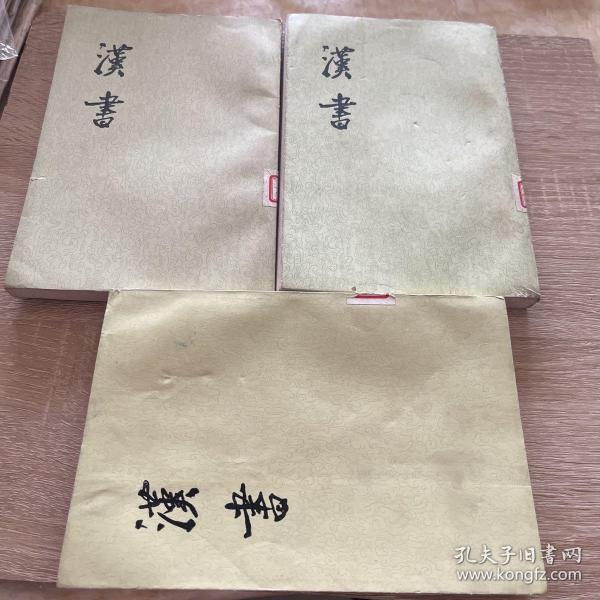 漢書
漢書
漢書
孔夫子旧书网
www.kongfz.com